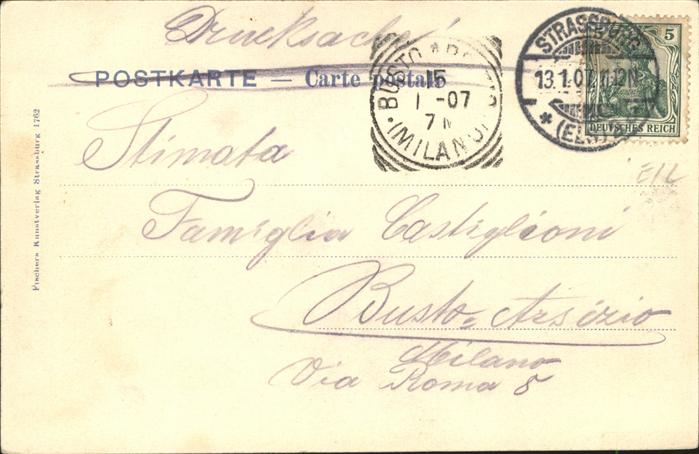 Drucksache!
POSTKARTE — Carte postale
BUSTO ARSIZIO
15
1 -07
7M
(MILANO)
STRASSBURG
13.1.07. 11-12N
* (ELS.)
5
DEUTSCHES REICH
E/L
Stimata
Famiglia Castiglioni
Busto-Arsizio
Milano
Via Roma 8
Fischers Kunstverlag Strassburg 1762